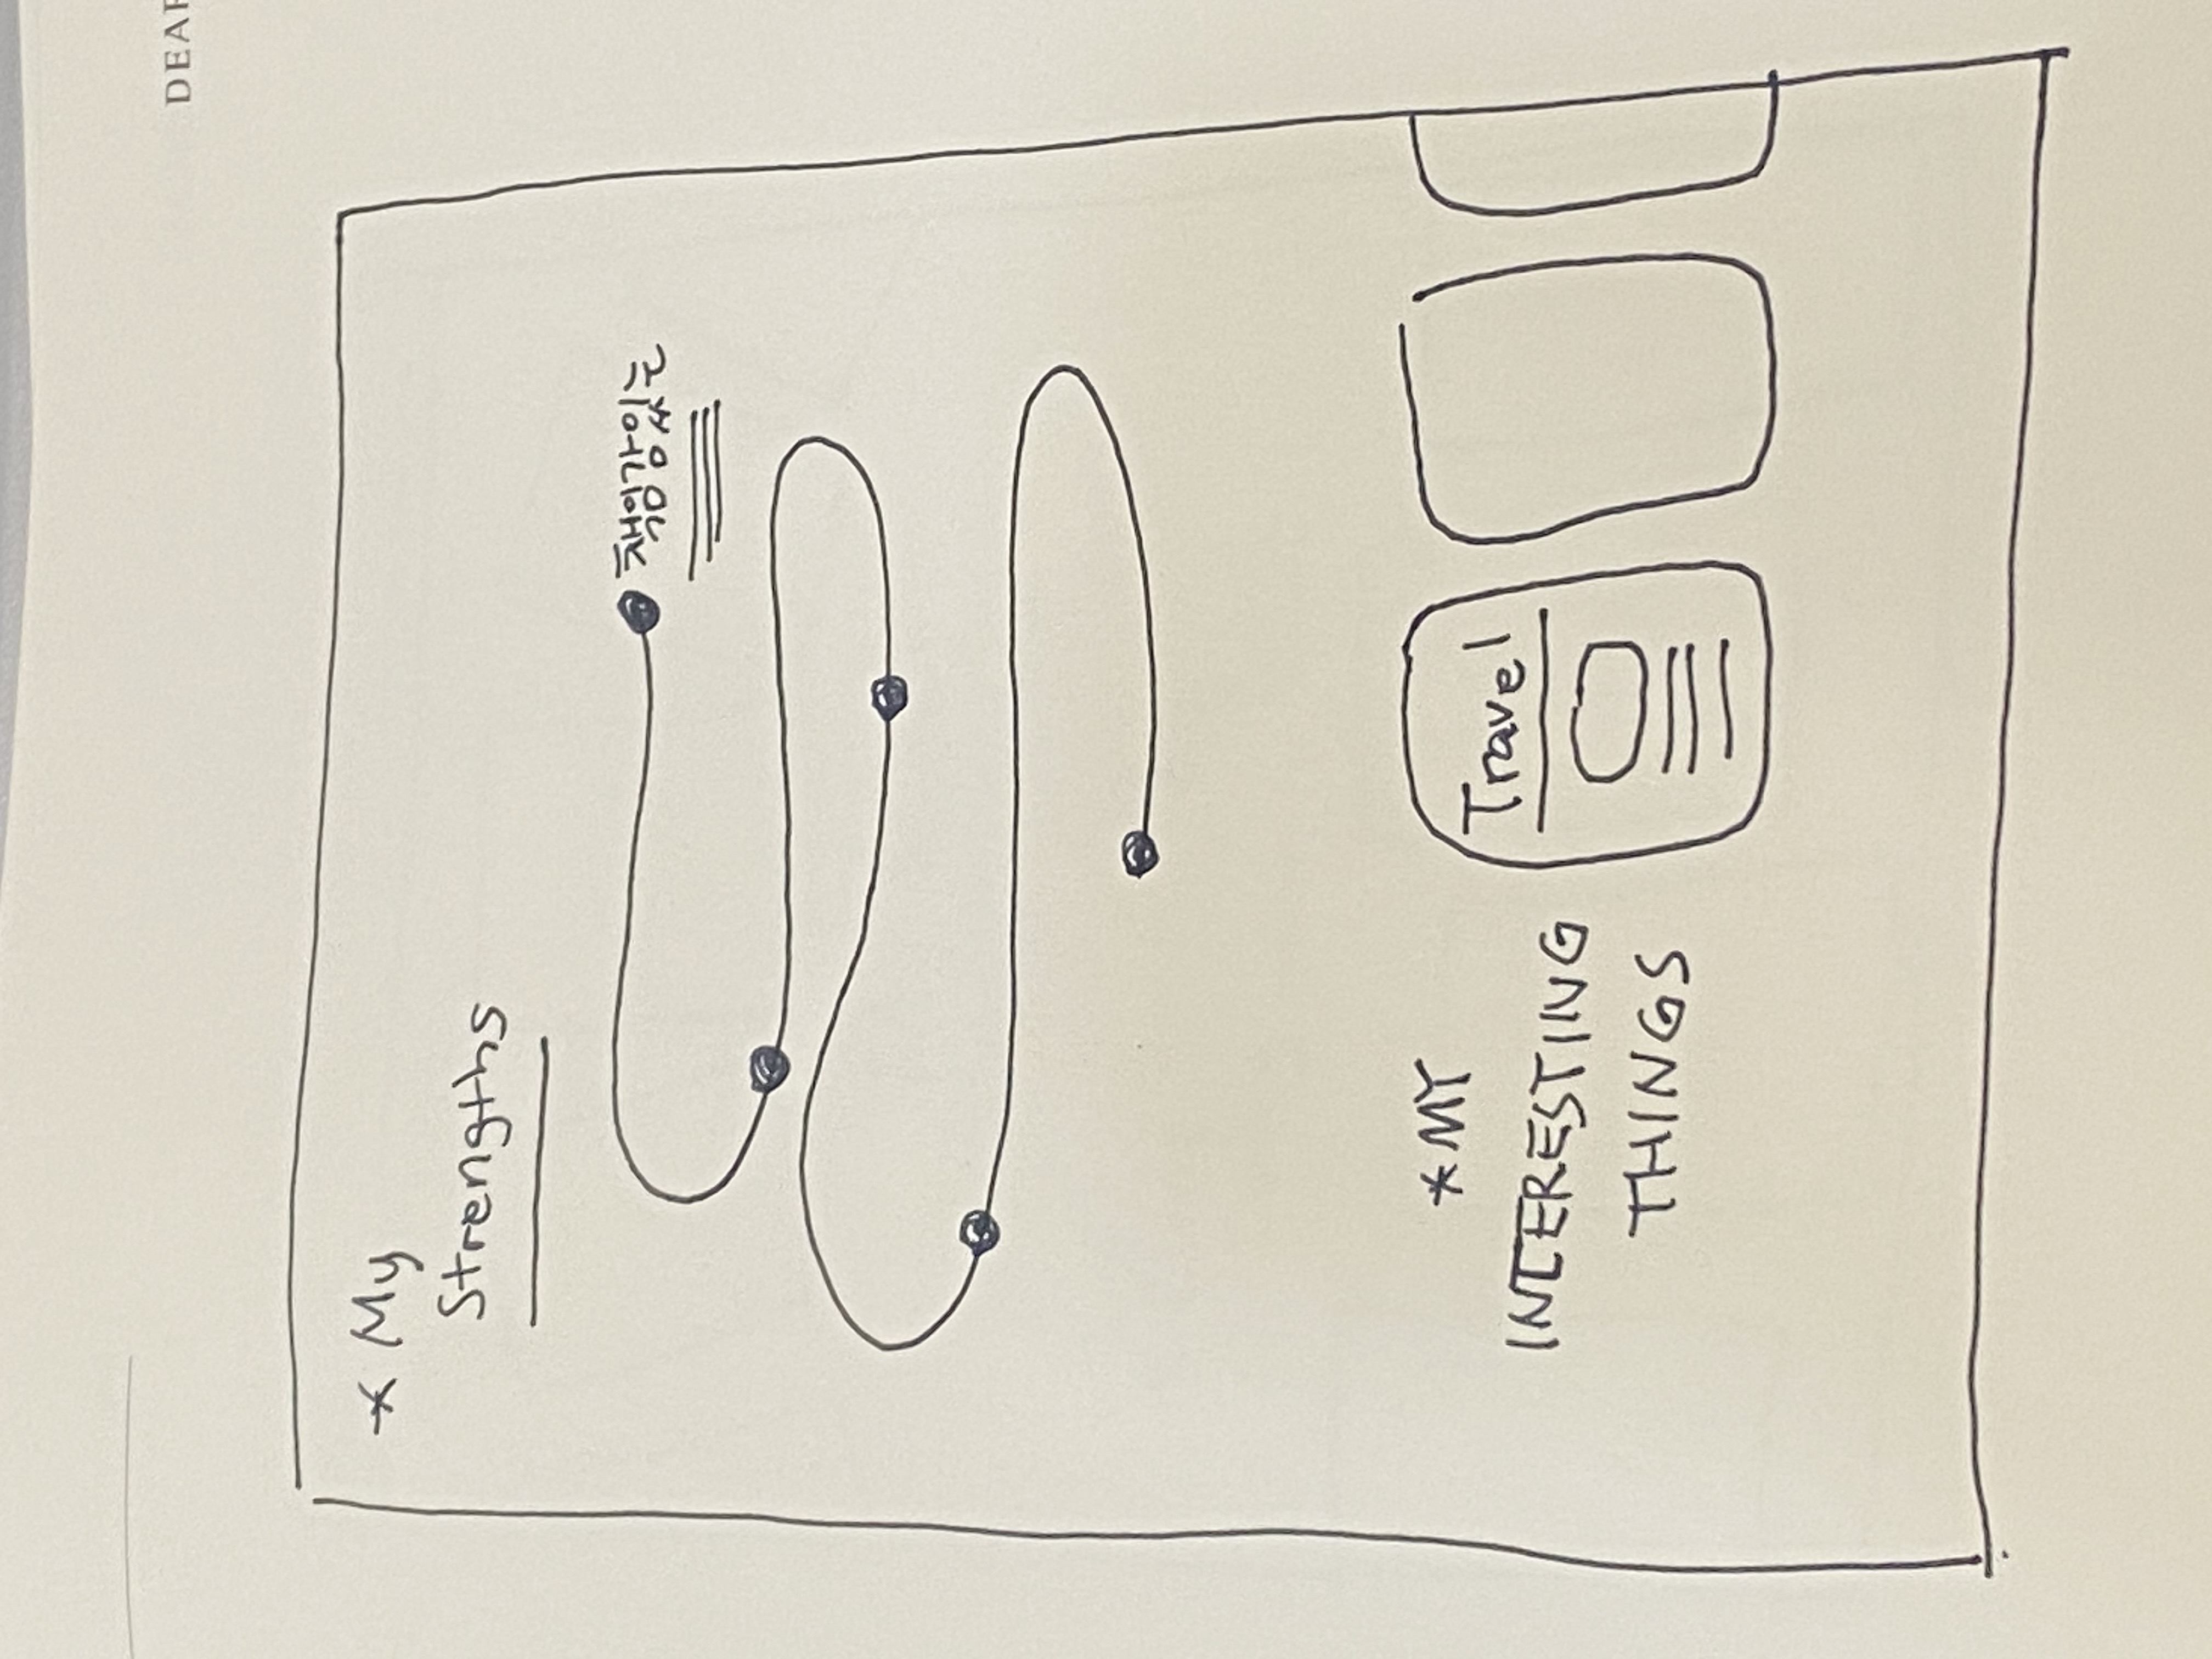 DEAR
* My
Strengths
책임감있는
* MY
INTERESTING
THINGS
Travel